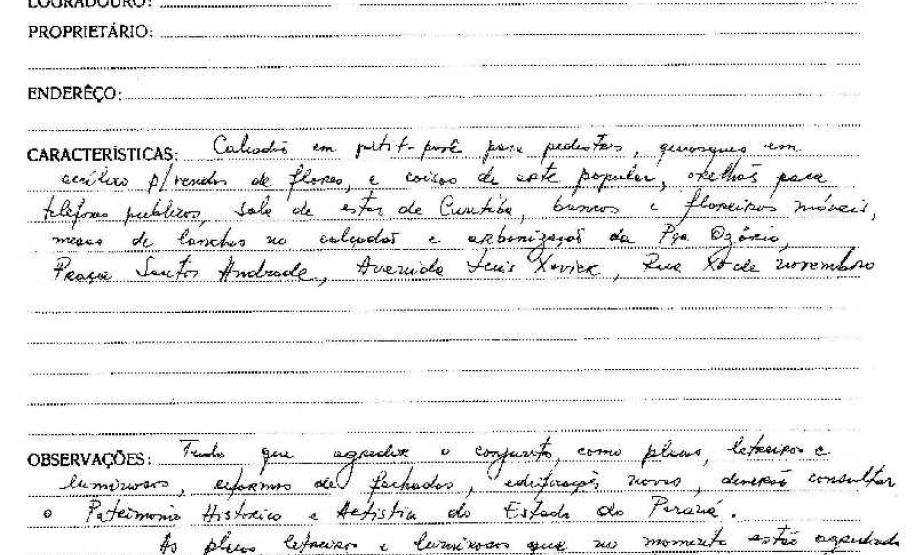 LOGRADOURO:
PROPRIETÁRIO:
ENDERÊÇO:
CARACTERÍSTICAS: Calçadão em petit-pavê para pedestres, quiosques em
acrílico p/vendas de flores, e coisas de arte popular, orelhas para
telefones publicos, sala de estar de Curitiba, bancos e floreiras móveis,
mesas de lanches no calçadão e arborização da Pça Ozório,
Praça Santos Andrade, Avenida Luis Xavier, Rua XV de novembro
OBSERVAÇÕES: Tudo que agredir o conjunto, como placas, letreiros e
luminosos, reformas de fachadas, edificações novas, deverão consultar
o Patrimonio Historico e Artistico do Estado do Paraná.
As placas letreiros e luminosos que no momento estão agredindo